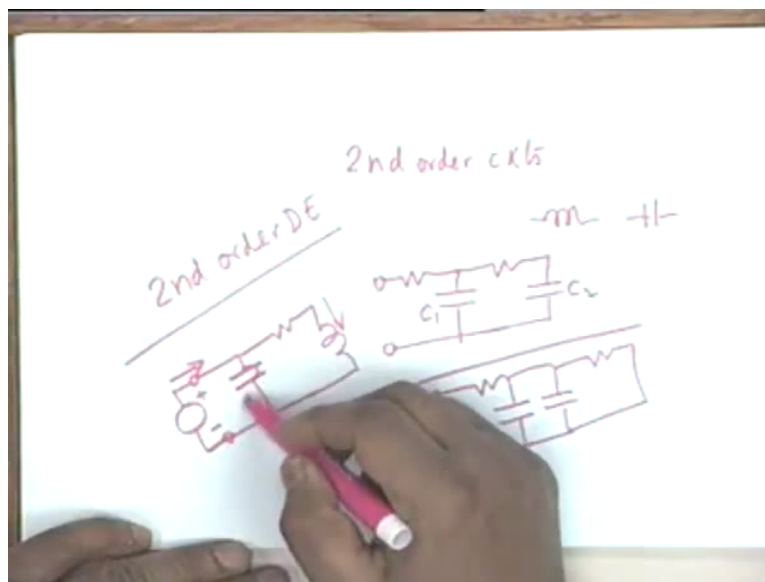 2nd order cxts
2nd order DE
C1
C2
+
-